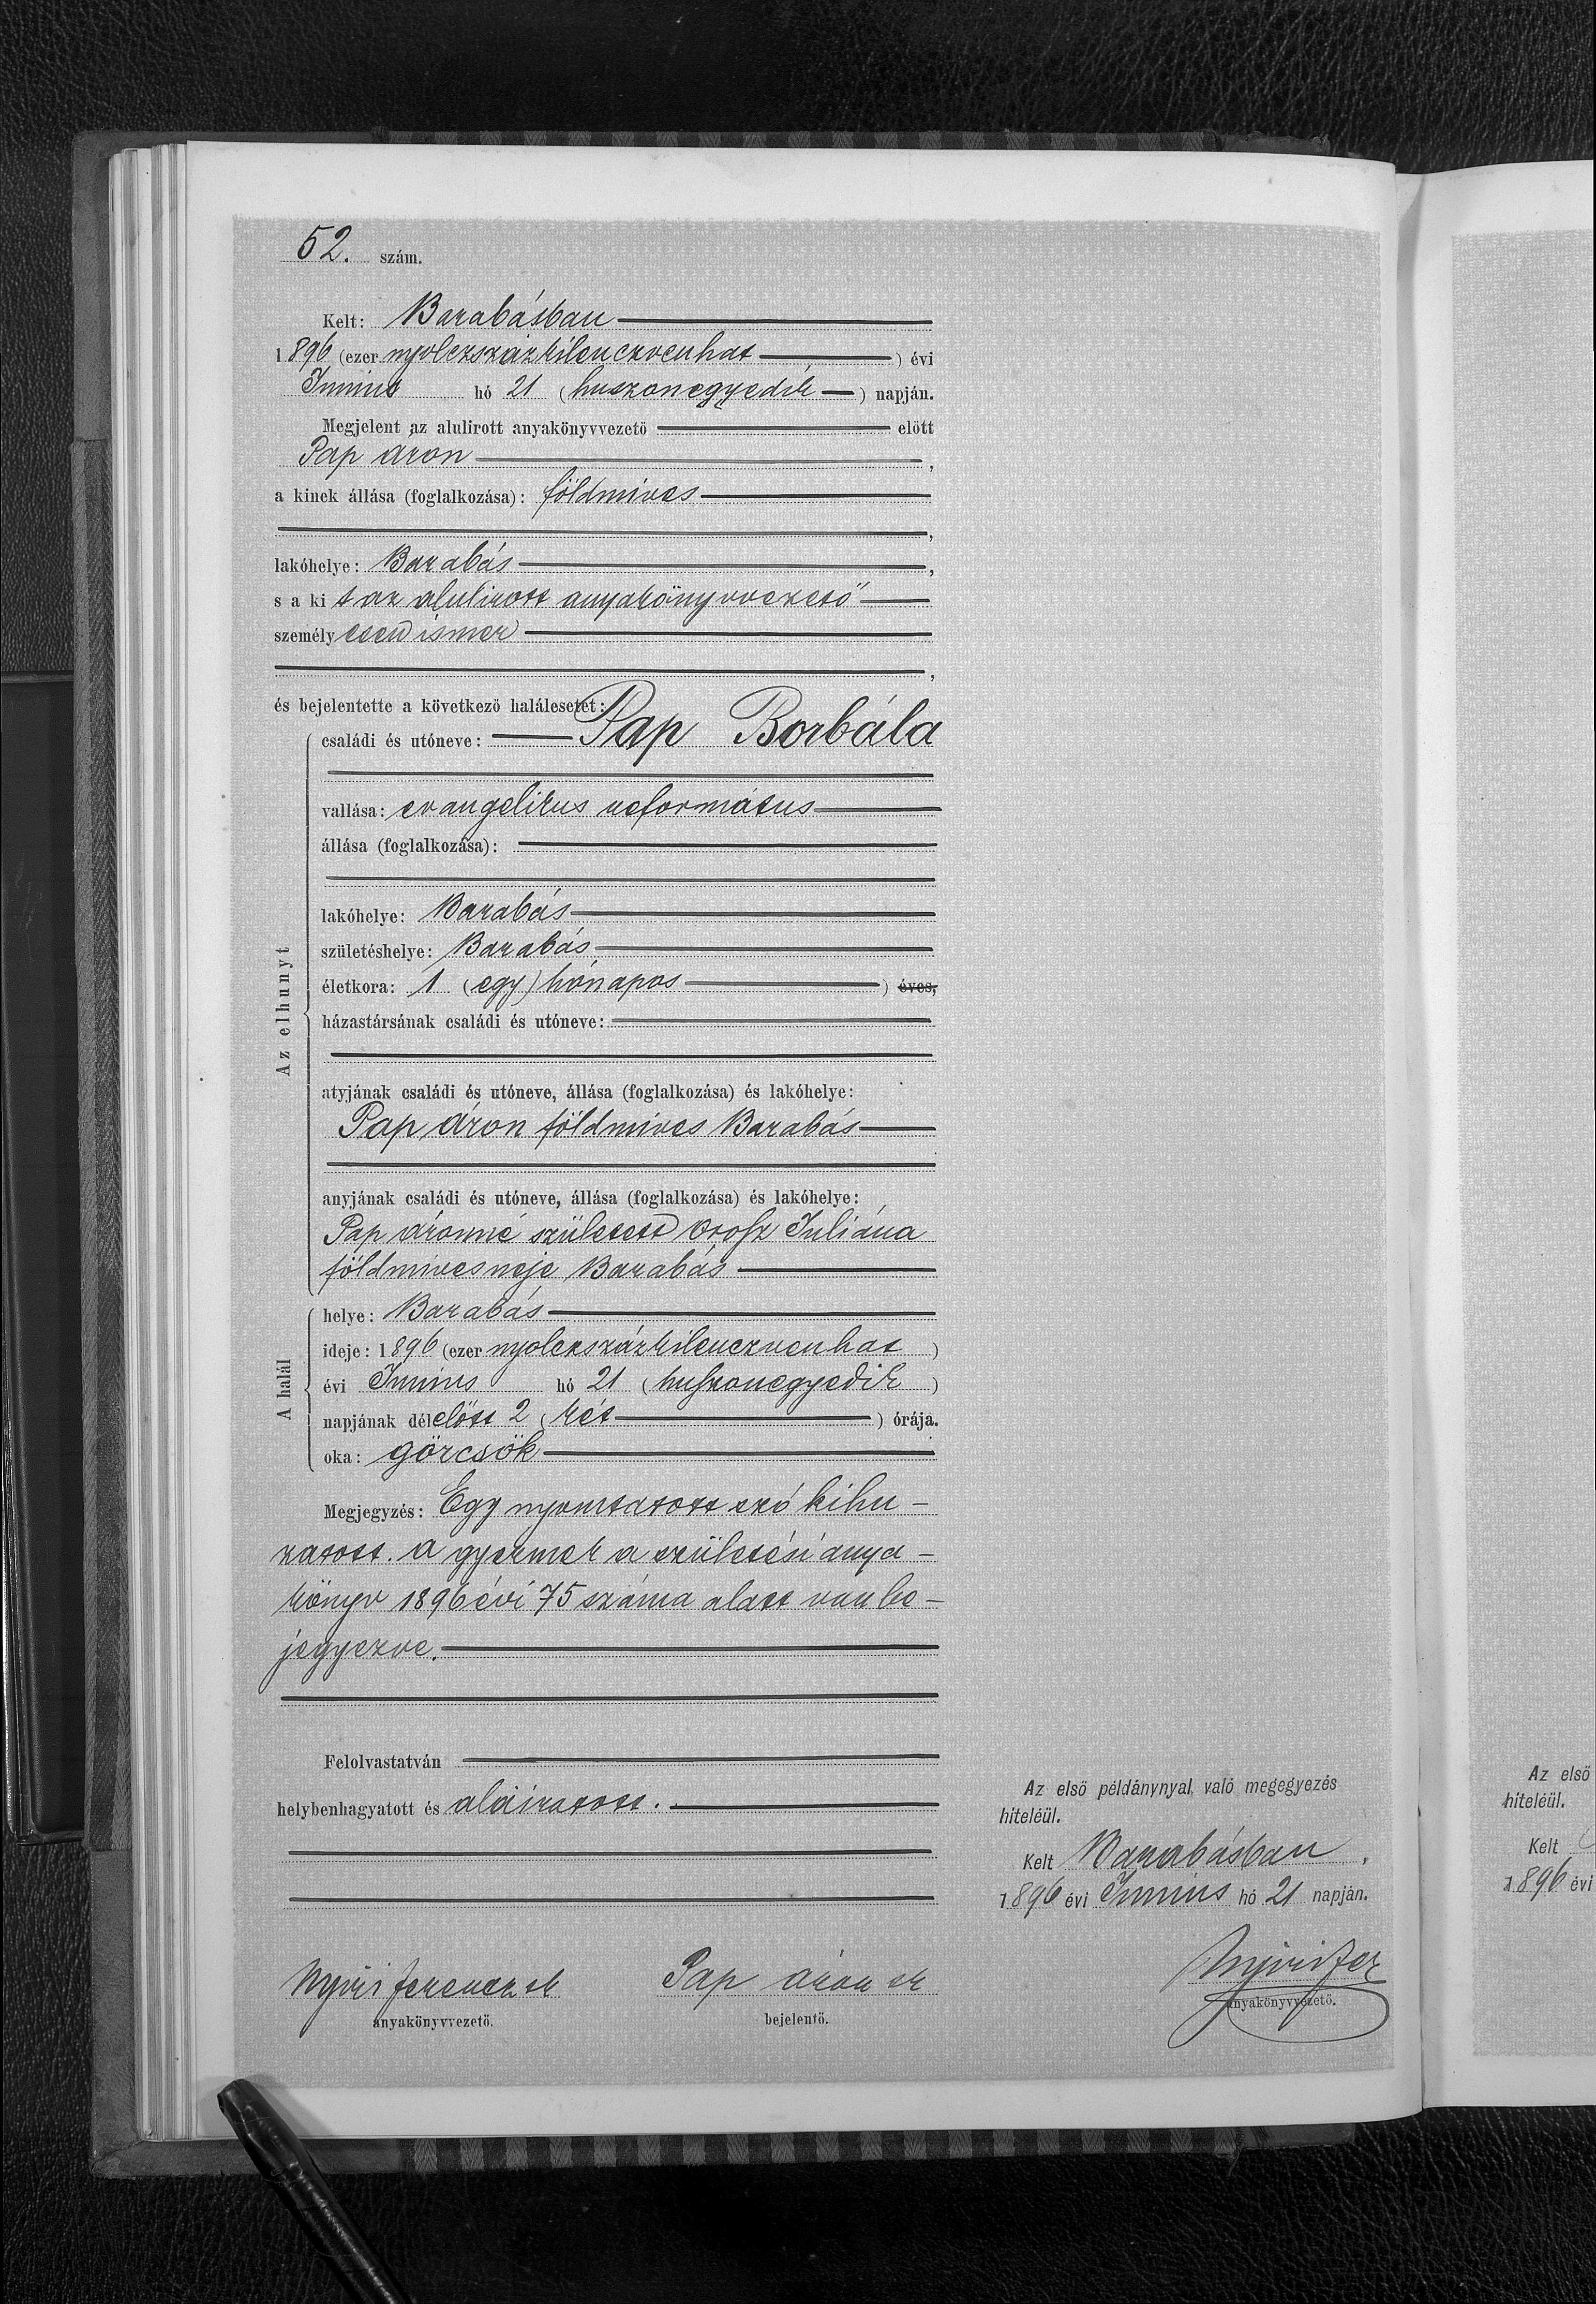 52. szám.
Kelt: Barabásban
1896 (ezer nyolczszázkilenczvenhat) évi
Junius hó 21 (huszonegyedik) napján.
Megjelent az alulirott anyakönyvvezető előtt
Pap Áron,
a kinek állása (foglalkozása): földmives
,
lakóhelye: Barabás,
s a ki t az alulirott anyakönyvvezető
személyesen ismer
,
és bejelentette a következő halálesetet:
családi és utóneve: Pap Borbála
vallása: evangelikus református
állása (foglalkozása):
lakóhelye: Barabás
születéshelye: Barabás,
életkora: 1 (egy) hónapos ) éves,
házastársának családi és utóneve:
Az elhunyt
atyjának családi és utóneve, állása (foglalkozása) és lakóhelye:
Pap Áron földmives Barabás
anyjának családi és utóneve, állása (foglalkozása) és lakóhelye:
Pap Áronné született Orosz Juliána
földmives neje Barabás
helye: Barabás
ideje: 1896 (ezer nyolczszázkilenczvenhat)
A halál
évi Junius hó 21 (huszonegyedik)
napjának délelőtt 2 (két) órája.
oka: görcsök
Megjegyzés: Egy nyomtatott szó kihu-
zatott. A gyermek a születési anya-
könyv 1896 évi 75 száma alatt van be-
jegyezve.
Felolvastatván
helybenhagyatott és aláiratott.
Nyiri Ferencz sk
anyakönyvvezető.
Pap Áron sk
bejelentő.
Az első példánynyal való megegyezés
hiteléül.
Kelt Barabásban,
1896 évi Junius hó 21 napján.
Nyiri Fer
anyakönyvvezető.
Az első
hiteléül.
Kelt
1896 évi